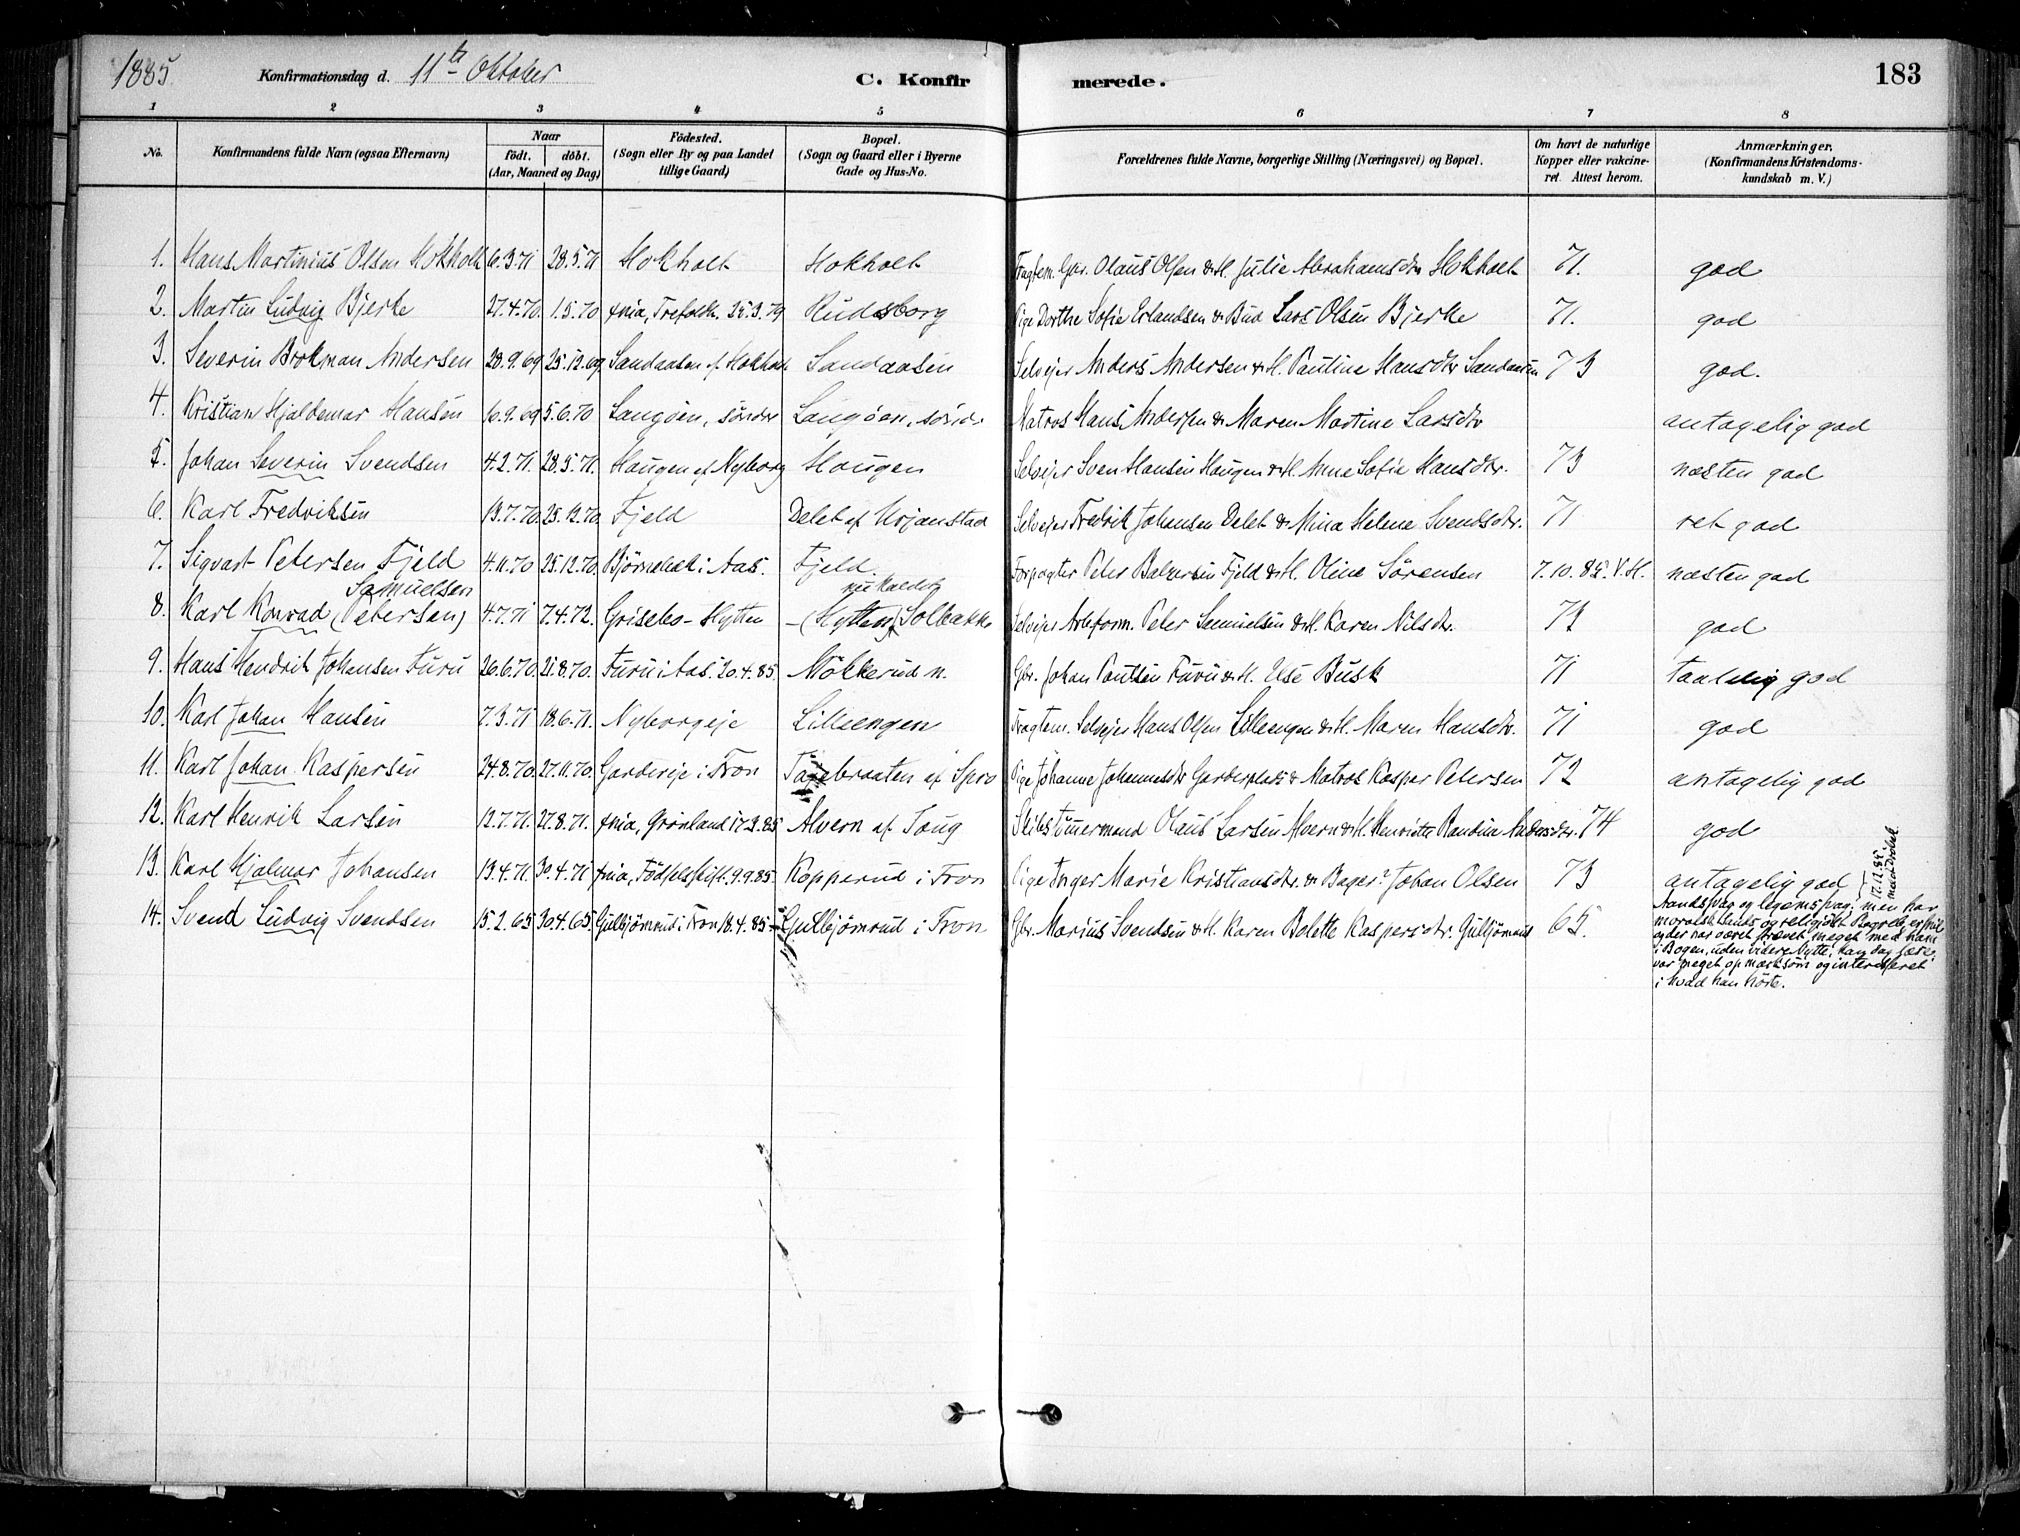 1885. Konfirmationsdag d. 11te Oktober C. Konfirmerede. 183
1 2 3 4 5 6 7 8
No. Konfirmandens fulde Navn (ogsaa Efternavn) Naar født. døbt. (Aar, Maaned og Dag) Fødested. (Sogn eller By og paa Landet tillige Gaard) Bopæl. (Sogn og Gaard eller i Byerne Gade og Hus-No. Forældrenes fulde Navne, borgerlige Stilling (Næringsvei) og Bopæl. Om havt de naturlige Kopper eller vakcineret. Attest herom. Anmærkninger. (Konfirmandens Kristendomskundskab m. V.)
1. Hans Martinius Olsen Hokholt 6.3.71 28.5.71 Hokholt Hokholt Gbr. Olaus Olsen & H. Julie Abrahamsdtr Hokholt 71. god
2. Martin Ludvig Bjerke 27.4.70. 1.5.70 Xnia, Trefoldh. 25.3.79 Rudsborg Pige Dorthe Sofie Erlandsen & Bud Lars Olsen Bjerke 71. god
3. Severin Brokman Andersen 28.9.69 25.12.69 Sandaasen af Hokholt Sandaasen Selvejer Anders Andersen & H. Pauline Hansdtr Sandaasen 73 god.
4. Kristian Hjaldemar Hansen 6.9.69 5.6.70 Langøen, søndre Langøen, søndr. Matros Hans Andersen & Maren Martine Larsdtr antagelig god
5. Johan Severin Svendsen 4.2.71. 28.5.71. Haugen af Nyborg Haugen Selvejer Sven Hansen Haugen & H. Anne Sofie Hansdtr. 73 næsten god
6. Karl Fredriksen 13.7.70 25.12.70. Fjeld Delet af Urjanstad Selvejer Fredrik Johansen Delet & Mina Helene Svendsdtr. 71 ret god
7. Sigvart Petersen Fjeld 4.11.70 25.12.70. Bjørnebek i Aas. Fjeld. Forpagter Peter Balzersen Fjeld & H. Oline Sørensen 7.10.85. V.H. næsten god
Samuelsen nu kaldet
8. Karl Konrad (Petersen) 4.7.71 7.4.72. Grisebo-Hytten -(Hytten) Solbakke Selvejer Arbform. Peter Samuelsen & H. Karen Nilsdtr. 73 god
9. Hans Hendrik Johansen Furu 26.6.70. 21.8.70. Furu i Aas. 20.4.85. Møkkerud n. Gbr. Johan Paulsen Furu & H. Else Busk 71 taalelig god
10. Karl Johan Hansen 7.3.71 18.6.71. Nyborgeje Lilleengen Fragtem. Selvejer Hans Olsen Lilleengen & H. Maren Hansdtr. 71 god
11. Karl Johan Kaspersen 24.8.70. 27.11.70. Gardereje i Fron af Spro Pige Johanne Johannesdtr Garderplads & Matros Kasper Petersen 72 antagelig god
12. Karl Henrik Larsen 12.7.71. 27.8.71. Xnia, Grønland 17.3.85 Alvern af Toug Skibstømmermand Olaus Larsen Alvern & H. Henriette Randine Andersdtr. 74 god
13. Karl Hjalmar Johansen 13.4.71 30.4.71 Xnia, Fødselsstift. 9.9.85. Kopperud i Fron Pige Inger Marie Kristiansdtr. & Bager? Johan Olsen 73 antagelig god } 17.12.85.
14. Svend Ludvig Svendsen 15.2.65 30.4.65 Gulbjørnrud i Fron 18.4.85 Gulbjørnrud i Fron Gbr. Marius Svendsen & H. Karen Bolette Kaspersdtr. Gulbjørnrud 65. Aandssvag og legemssvag; men har
moralsk Sands og religiøst Begreb,
og der har været prøvet meget med ham
i Bogen, uden videre Nytte;
var meget opmærksom og interesseret
i hvad han hørte.